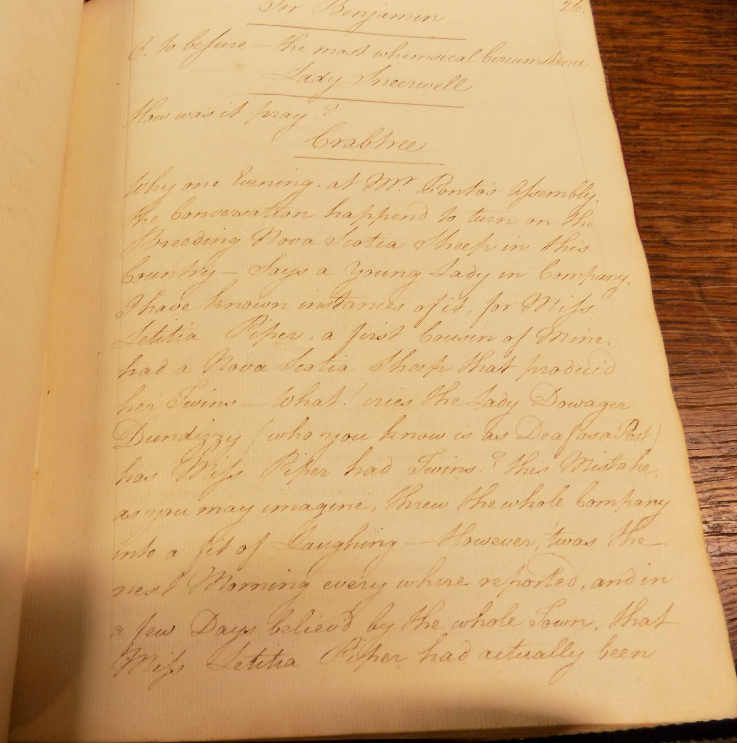 26.
Sir Benjamin
O. to besure – the most whimsical Circumstance
Lady Sneerwell
How was it pray?
Crabtree
Why one Evening. at Mrs Ponto's Assembly,
the Conversation happend to turn on the
Breeding Nova Scotia Sheep in this
Country – Says a Young Lady in Company.
I have known instances of it, for Miss
Letitia Piper, a first Cousin of Mine.
had a Nova Scotia Sheep that produc'd
her Twins – What! cries the Lady Dowager
Dundizzy (who you know is as Deaf as a Post)
has Miss Piper had Twins? this Mistake.
as you may imagine, threw the whole Company
into a fit of Laughing – However, 'twas the
next Morning every where reported, and in
a few Days believ'd by the whole Town, that
Miss Letitia Piper had actually been